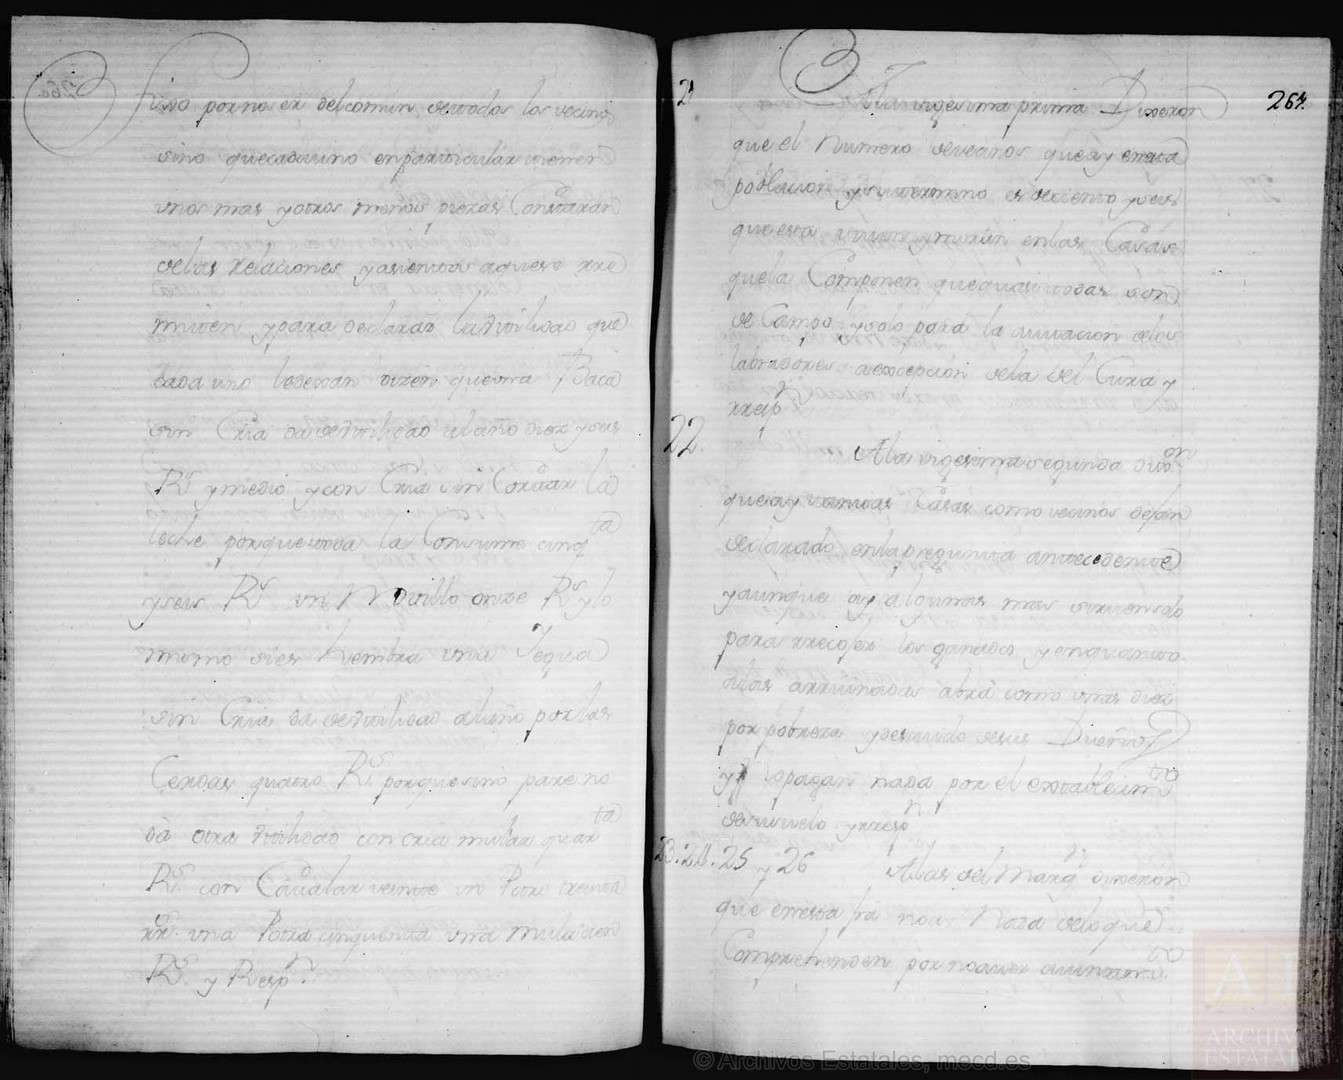 sino por no ser del comun de todos los vecinos
sino que cada uno en particular tienen
unos mas y otros menos dieras Constaran
de las Relaciones y asientos aquese rre
miten y para declarar la Vtilidad que
cada uno le dexan dizen que una Baca
sin Cria da de Vtilidad al año diez y seis
Rs. y medio y con Cria sin Contar la
leche porque toda la Consume cinqta
y seis Rs. un Novillo onze Rs. y lo
mismo si es hembra una Yegua
sin Cria da de Vtilidad al año por las
Cerdas quatro Rs. porque sino pare no
dà otra Vtilidad con cria mular quarta
Rs. con Cavalar veinte un Potro treinta
rr. una Potra cinquenta una mula cien
Rs. y Respn.
264.
21 A la vigesima prima Dixeron
que el Numero de vecinos que ay en esta
poblacion y su termino es de ciento y seis
que esta viven y moran en las Casas
que la Componen que quasi todas son
de Campo y solo para la situacion de los
labradores a excepcion de la del Cura y
rrespn
22. A la vigesima segunda dixon
que ay tantas Casas como vecinos dejan
declarado en la pregunta antecedente
y aunque ay algunas mas sirviendo
para rrecojer los ganados y en quanto
a las arruinadas abrà como unas diez
por pobreza y descuido de sus Dueños
y no pagan nada por el establecimto
de suelo y rrespn
23. 24. 25 y 26 A las del Margn. dixeron
que en esta fra no ay Nada de lo que
Comprehenden por no aver